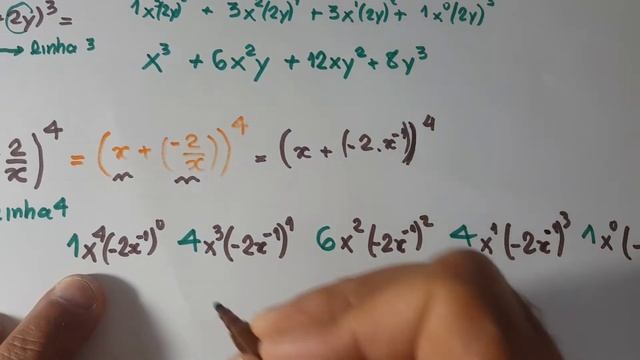 2y)³ = 1x³(2y)⁰ + 3x²(2y)¹ + 3x¹(2y)² + 1x⁰(2y)³
→ linha 3
x³ + 6x²y + 12xy² + 8y³
2/x)⁴ = (x + (-2/x))⁴ = (x + (-2.x⁻¹))⁴
linha 4
1x⁴(-2x⁻¹)⁰ 4x³(-2x⁻¹)¹ 6x²(-2x⁻¹)² 4x¹(-2x⁻¹)³ 1x⁰(-